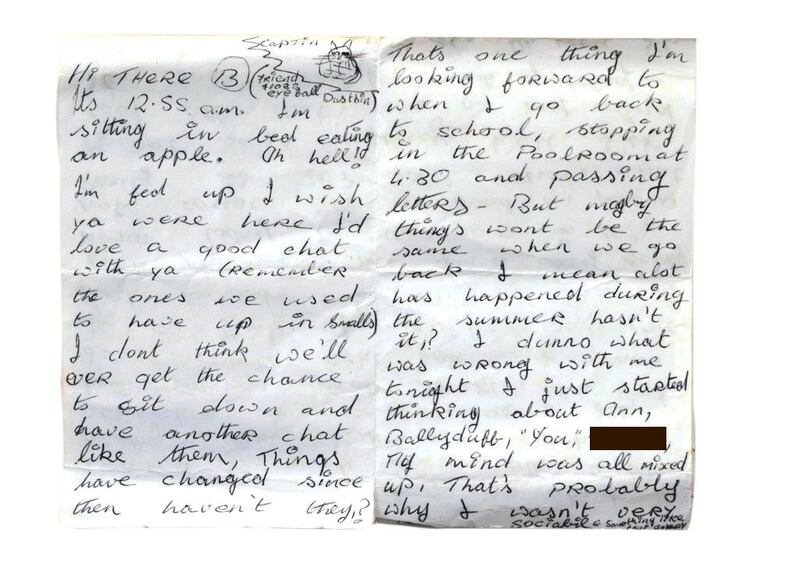 Scapsin
Hi THERE B (Friend
eyeball
Dustbin)
Its 12.55 a.m. I'm
sitting in bed eating
an apple. Oh hell!
I'm fed up I wish
ya were here I'd
love a good chat
with ya (remember
the ones we used
to have up in Smalls)
I dont think we'll
ever get the chance
to sit down and
have another chat
like them, Things
have changed since
then haven't they,?
Thats one thing I'm
looking forward to
when I go back
to school, stopping
in the Poolroom at
4.30 and passing
letters - But mayby
things wont be the
same when we go
back I mean alot
has happened during
the summer hasn't
it,? I dunno what
was wrong with me
tonight I just started
thinking about Ann,
Ballyduff, "You,"
My mind was all mixed
up, That's probably
why I wasn't very
sociabil &amp; Something like
that anyway